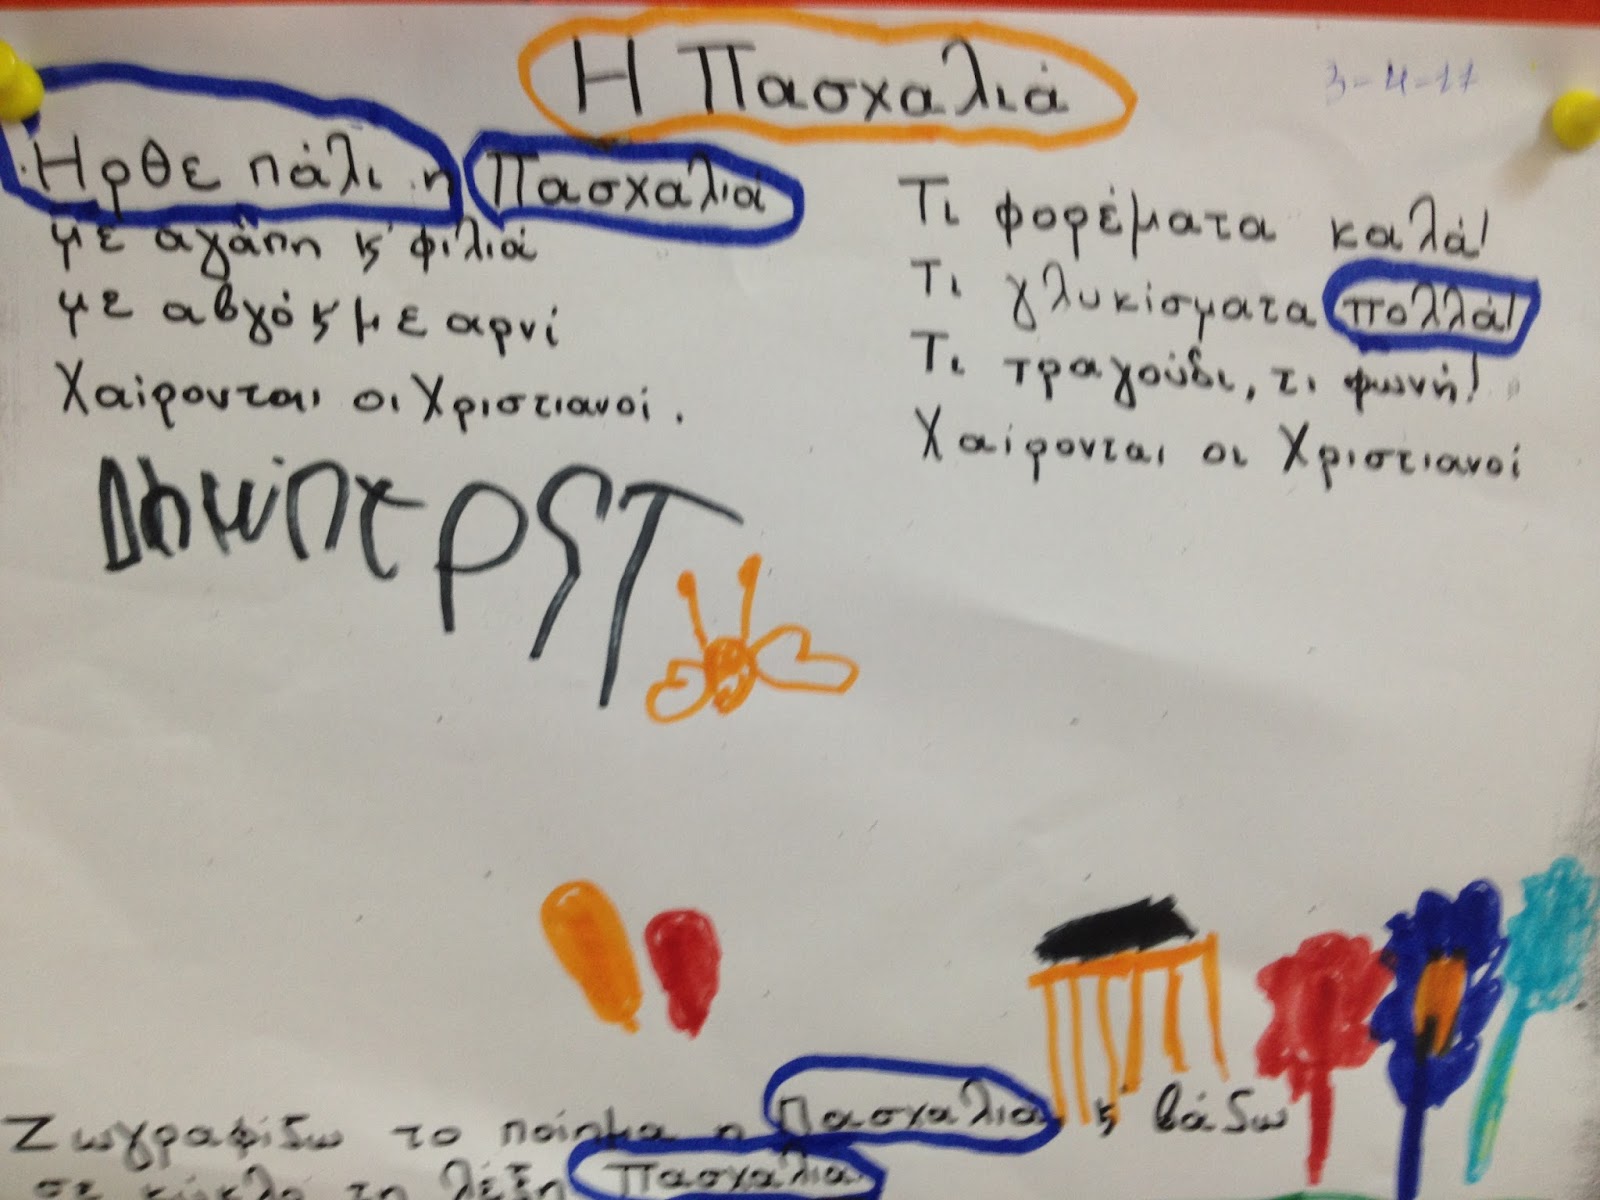 Η Πασχαλιά
3-4-17
Ηρθε πάλι η Πασχαλιά
με αγάπη ϗ φιλιά
με αβγό ϗ με αρνί
Χαίρονται οι Χριστιανοί.
Τι φορέματα καλά!
Τι γλυκίσματα πολλά!
Τι τραγούδι, τι φωνή!
Χαίρονται οι Χριστιανοί
Ζωγραφίζω το ποίημα η Πασχαλια ϗ βάζω
σε κύκλο τη λέξη Πασχάλια